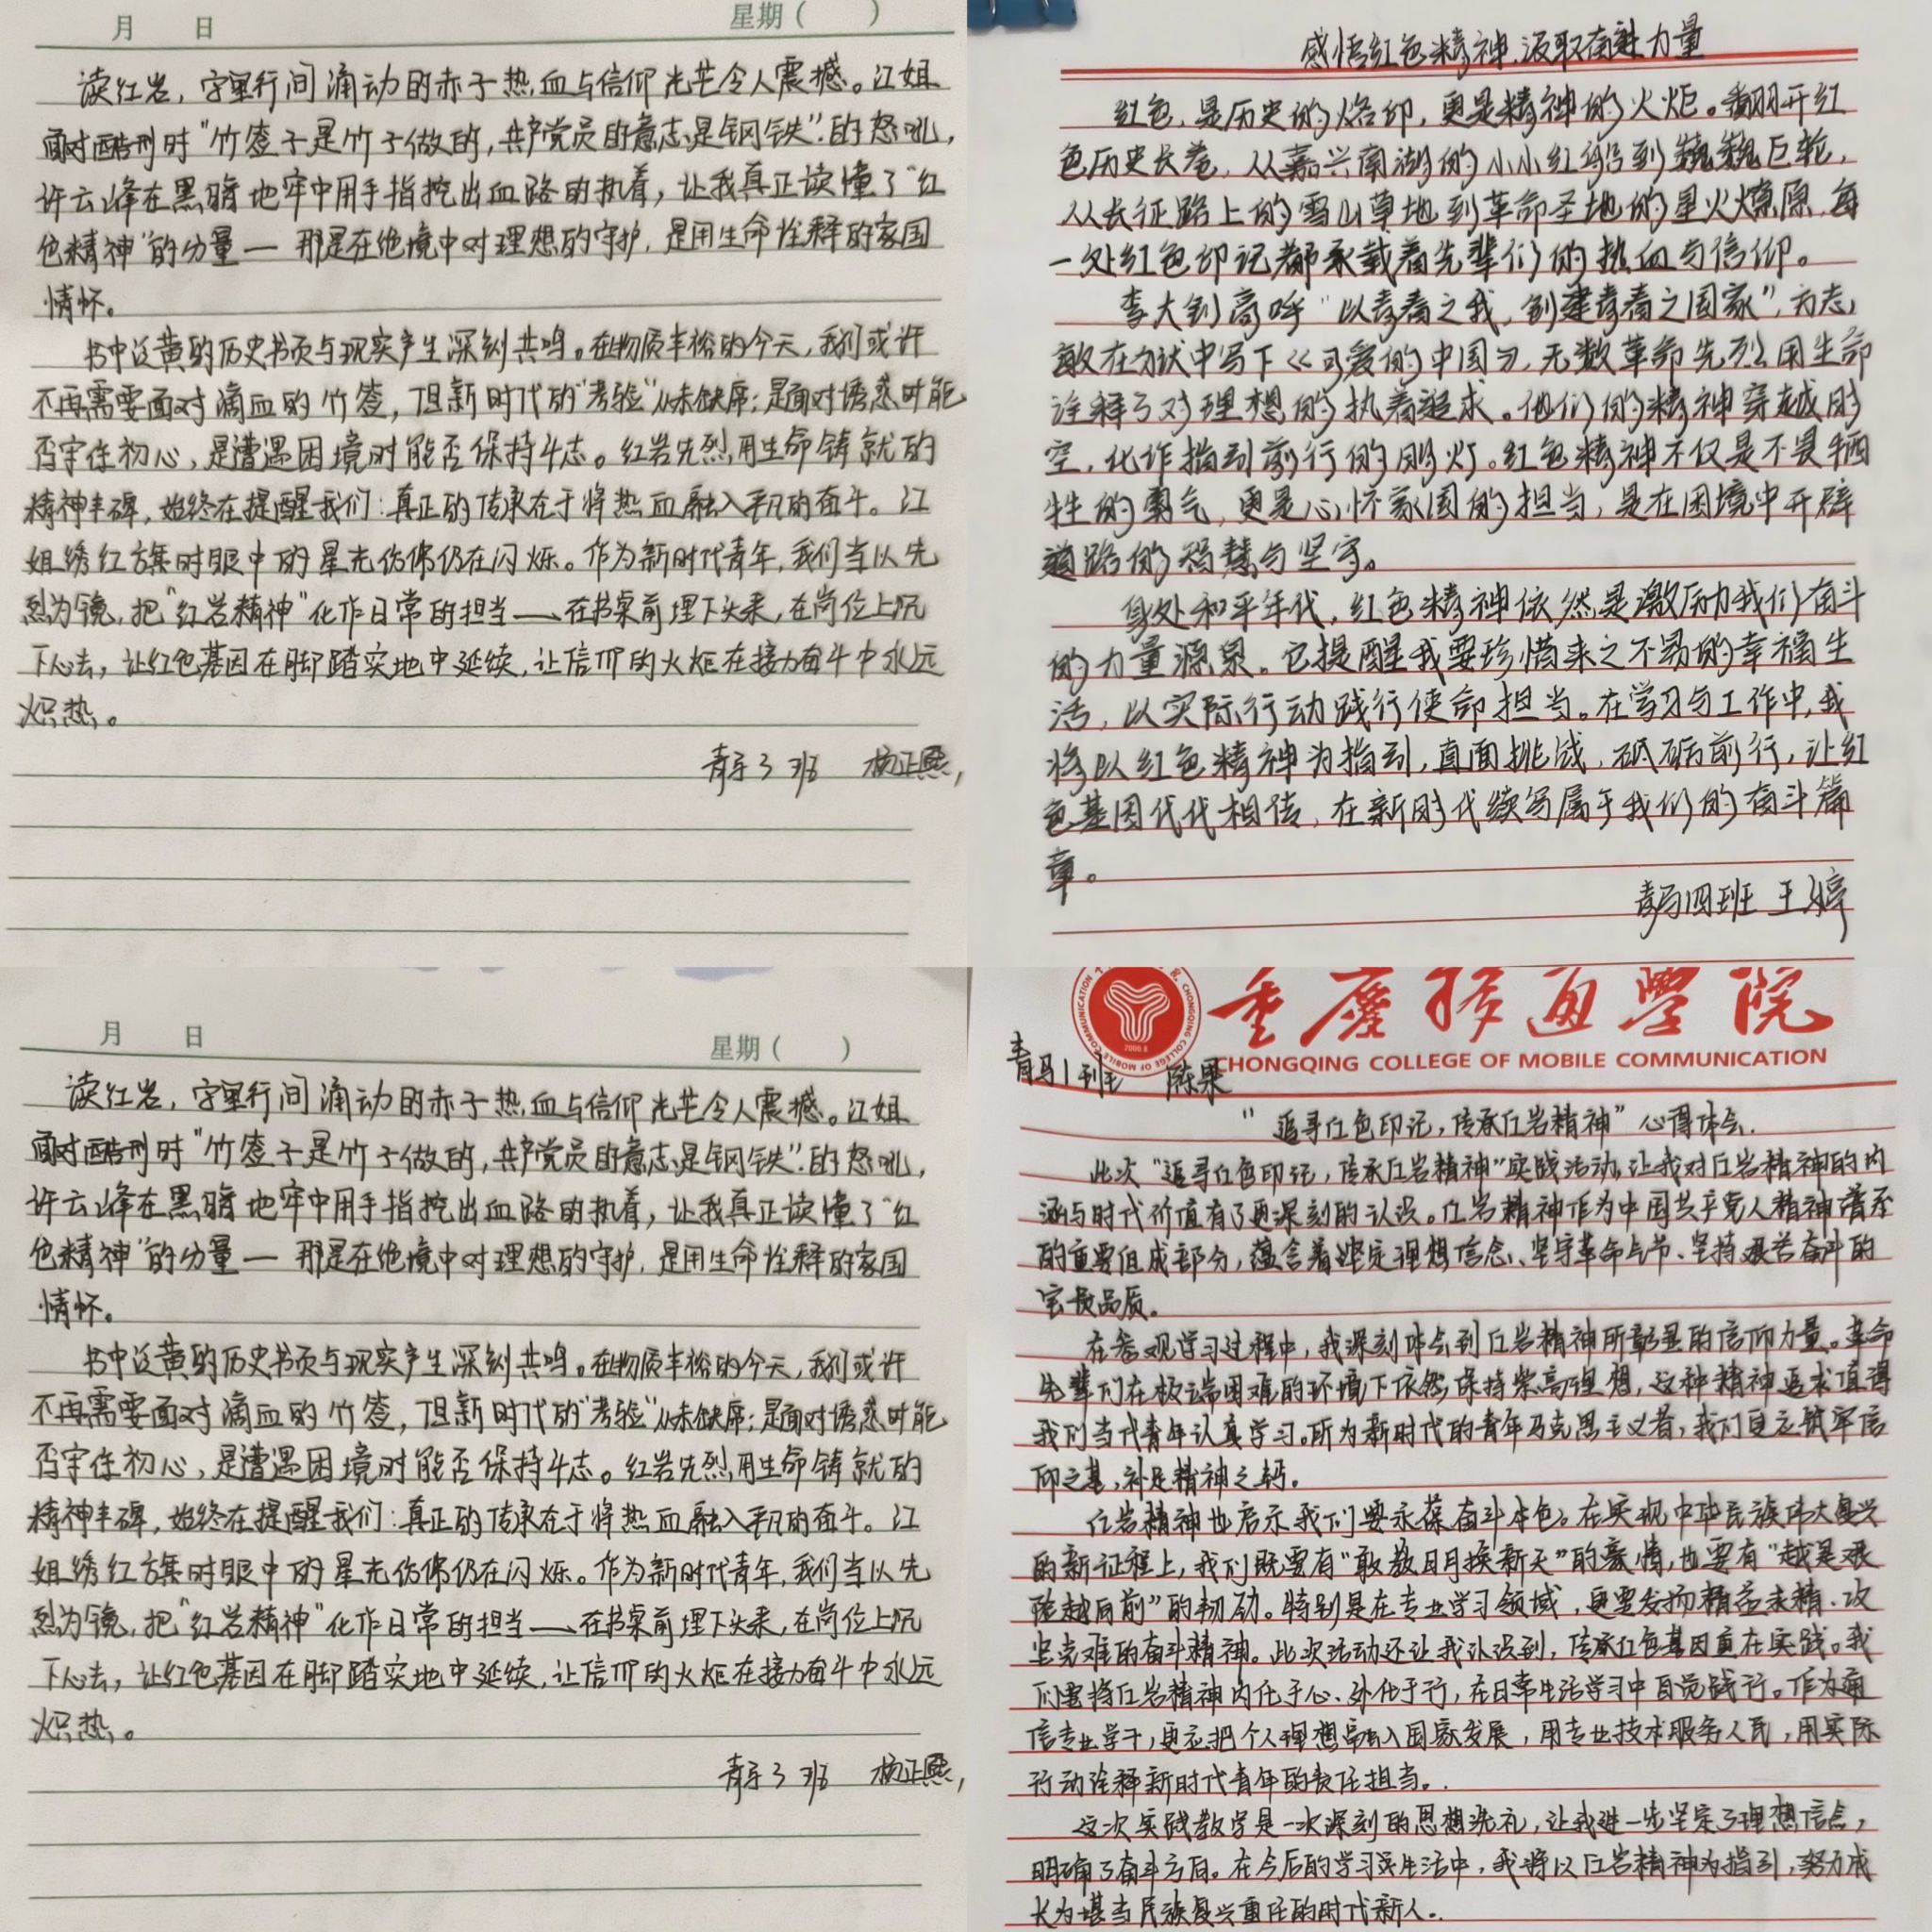 月 日 星期( )
读红岩，字里行间涌动的赤子热血与信仰光芒令人震撼。江姐
面对酷刑时“竹签子是竹子做的，共产党员的意志是钢铁”的怒吼，
许云峰在黑暗地牢中用手指挖出血路的执着，让我真正读懂了“红
色精神”的分量— 那是在绝境中对理想的守护，是用生命诠释的家国
情怀。
书中泛黄的历史书页与现实产生深刻共鸣。在物质丰裕的今天，我们或许
不再需要面对滴血的竹签，但新时代的“考验”从未缺席：是面对诱惑时能
否守住初心，是遭遇困境时能否保持斗志。红岩先烈用生命铸就的
精神丰碑，始终在提醒我们：真正的传承在于将热血融入平凡的奋斗。江
姐绣红旗时眼中的星光仿佛仍在闪烁。作为新时代青年，我们当以先
烈为镜，把“红岩精神”化作日常的担当——在书桌前埋下头来，在岗位上沉
下心去，让红色基因在脚踏实地中延续，让信仰的火炬在接力奋斗中永远
炽热。
青马3班 杨正熙
感悟红色精神，汲取奋进力量
红色，是历史的烙印，更是精神的火炬。翻开红
色历史长卷，从嘉兴南湖的小小红船到巍巍巨轮，
从长征路上的雪山草地到革命圣地的星火燎原，每
一处红色印记都承载着先辈们的热血与信仰。
李大钊高呼“以青春之我，创建青春之国家”，方志
敏在狱中写下《可爱的中国》，无数革命先烈用生命
诠释了对理想的执着追求。他们的精神穿越时
空，化作指引前行的明灯。红色精神不仅是不畏牺
牲的勇气，更是心怀家国的担当，是在困境中开辟
道路的智慧与坚守。
身处和平年代，红色精神依然是激励我们奋斗
的力量源泉。它提醒我要珍惜来之不易的幸福生
活，以实际行动践行使命担当。在学习与工作中，我
将以红色精神为指引，直面挑战，砥砺前行，让红
色基因代代相传，在新时代续写属于我们的奋斗篇
章。
青马四班 王婷
月 日 星期( )
读红岩，字里行间涌动的赤子热血与信仰光芒令人震撼。江姐
面对酷刑时“竹签子是竹子做的，共产党员的意志是钢铁”的怒吼，
许云峰在黑暗地牢中用手指挖出血路的执着，让我真正读懂了“红
色精神”的分量— 那是在绝境中对理想的守护，是用生命诠释的家国
情怀。
书中泛黄的历史书页与现实产生深刻共鸣。在物质丰裕的今天，我们或许
不再需要面对滴血的竹签，但新时代的“考验”从未缺席：是面对诱惑时能
否守住初心，是遭遇困境时能否保持斗志。红岩先烈用生命铸就的
精神丰碑，始终在提醒我们：真正的传承在于将热血融入平凡的奋斗。江
姐绣红旗时眼中的星光仿佛仍在闪烁。作为新时代青年，我们当以先
烈为镜，把“红岩精神”化作日常的担当——在书桌前埋下头来，在岗位上沉
下心去，让红色基因在脚踏实地中延续，让信仰的火炬在接力奋斗中永远
炽热。
青马3班 杨正熙
重庆移通学院
CHONGQING COLLEGE OF MOBILE COMMUNICATION
青马1班 陈果
“追寻红色印记，传承红岩精神”心得体会.
此次“追寻红色印记，传承红岩精神”实践活动，让我对红岩精神的内
涵与时代价值有了更深刻的认识。红岩精神作为中国共产党人精神谱系
的重要组成部分，蕴含着坚定理想信念、坚守革命气节、坚持艰苦奋斗的
宝贵品质。
在参观学习过程中，我深刻体会到红岩精神所彰显的信仰力量。革命
先辈们在极端困难的环境下依然保持崇高理想，这种精神追求值得
我们当代青年认真学习。所为新时代的青年马克思主义者，我们更应筑牢信
仰之基，补足精神之钙。
红岩精神也启示我们要永葆奋斗本色。在实现中华民族伟大复兴
的新征程上，我们既要有“敢教日月换新天”的豪情，也要有“越是艰
险越向前”的韧劲。特别是在专业学习领域，更要发扬精益求精、攻
坚克难的奋斗精神。此次活动还让我认识到，传承红色基因重在实践。我
们要将红岩精神内化于心、外化于行，在日常生活学习中自觉践行。作为通
信专业学子，更应把个人理想融入国家发展，用专业技术服务人民，用实际
行动诠释新时代青年的责任担当。.
这次实践教学是一次深刻的思想洗礼，让我进一步坚定了理想信念，
明确了奋斗方向。在今后的学习与生活中，我将以红岩精神为指引，努力成
长为堪当民族复兴重任的时代新人。.